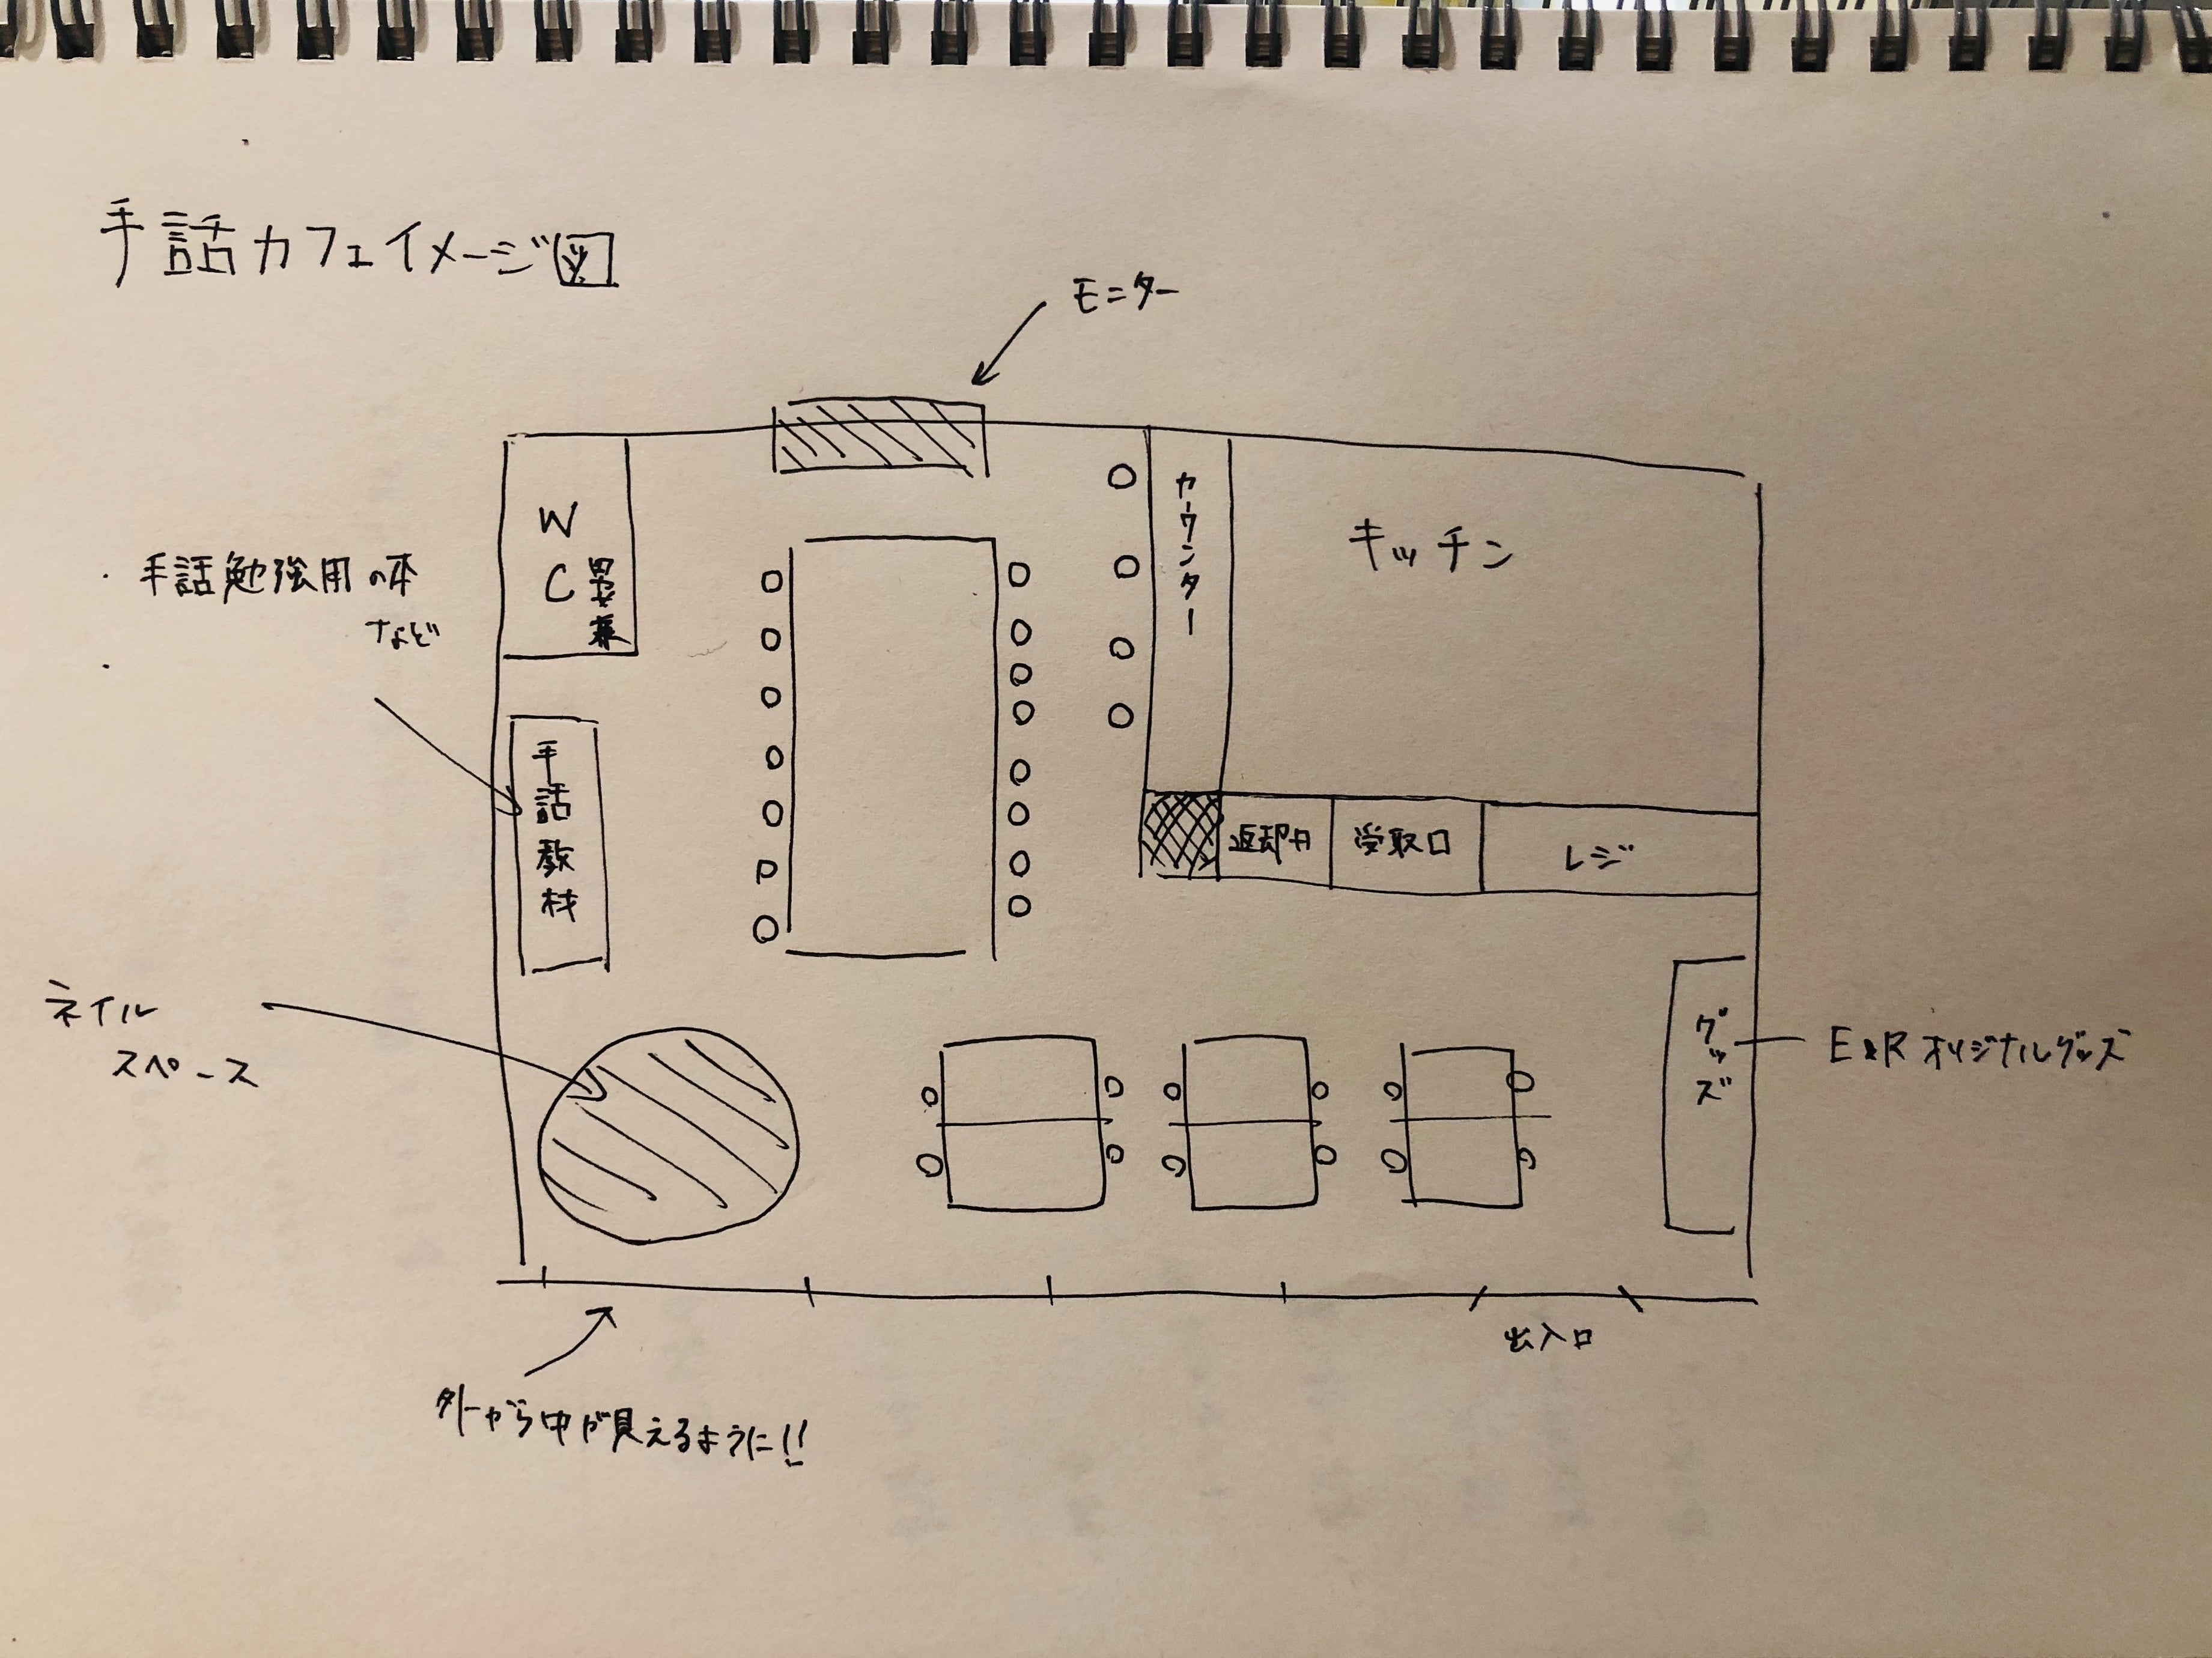 手話カフェイメージ図
モニター
手話勉強用の本
など
WC
男女兼
カウンター
キッチン
手話教材
返却口
受取口
レジ
ネイル
スペース
グッズ
E&Rオリジナルグッズ
出入口
外から中が見えるように!!